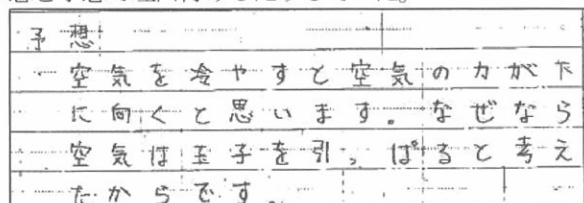 予想
空気を冷やすと空気の力が下
に向くと思います。なぜなら
空気は玉子を引っぱると考え
たからです。